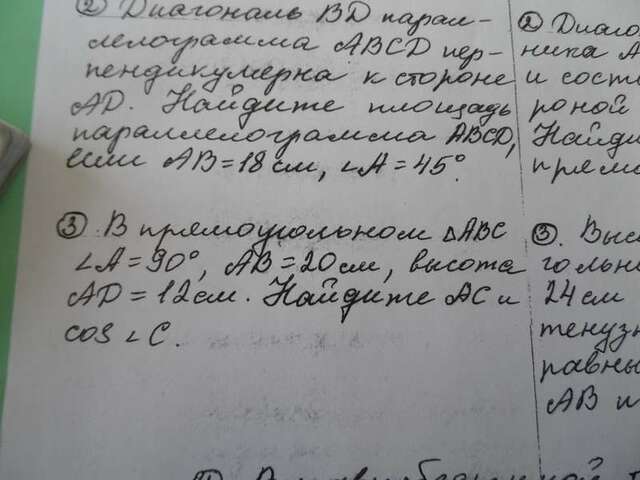 ② Диагональ BD парал-
лелограмма ABCD пер-
пендикулярна к стороне
AD. Найдите площадь
параллелограмма ABCD,
если AB = 18 см, ∠A = 45°.
③ В прямоугольном ΔABC
∠A = 90°, AB = 20 см, высота
AD = 12 см. Найдите AC и
cos ∠C.
② Диаго
ника А
и сост
роной
Найди
прямо
③. Выс
гольн
24 см
тенуз
равны
АВ и